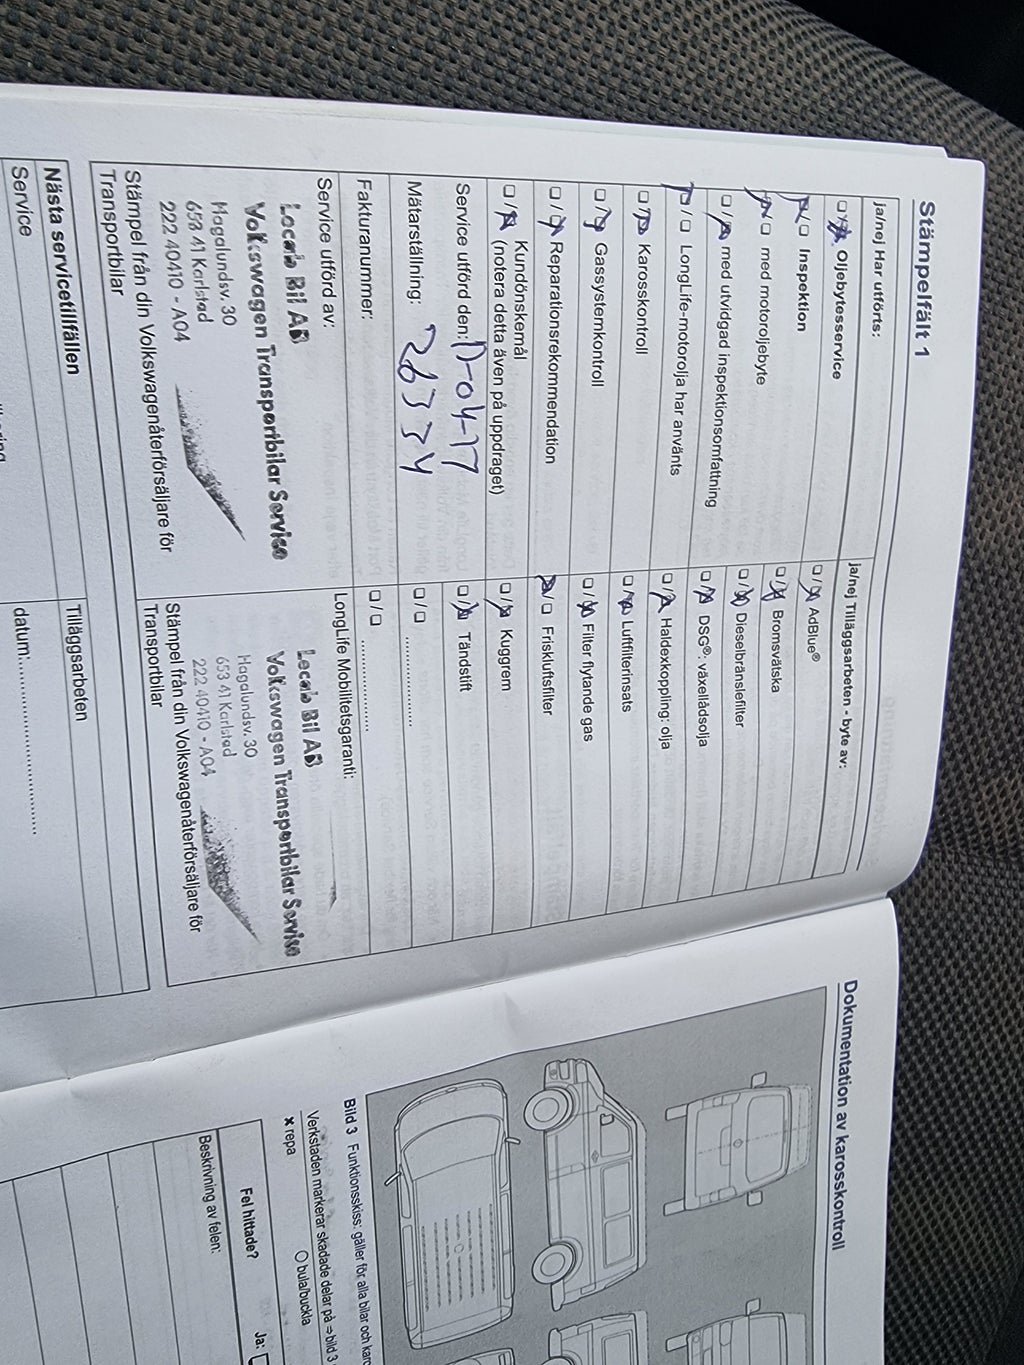 Stämpelfält 1
ja/nej Har utförts:
Oljebytesservice
Inspektion
med motoroljebyte
med utvidgad inspektionsomfattning
LongLife-motorolja har använts
Karosskontroll
Gassystemkontroll
Reparationsrekommendation
Kundönskemål
(notera detta även på uppdraget)
Service utförd den:
Mätarställning: 26334
Fakturanummer:
Service utförd av:
Lecab Bil AB
Volkswagen Transportbilar Service
Hagalundsv. 30
653 41 Karlstad
222 40410 - A04
Stämpel från din Volkswagenåterförsäljare för
Transportbilar
ja/nej Tilläggsarbeten - byte av:
AdBlue®
Bromsvätska
Dieselbränslefilter
DSG®: växellådsolja
Haldexkoppling: olja
Luftfilterinsats
Filter flytande gas
Friskluftsfilter
Kuggrem
Tändstift
LongLife Mobilitetsgaranti:
Lecab Bil AB
Volkswagen Transportbilar Service
Hagalundsv. 30
653 41 Karlstad
222 40410 - A04
Stämpel från din Volkswagenåterförsäljare för
Transportbilar
Nästa servicetillfällen
Service
Tilläggsarbeten
datum:
Dokumentation av karosskontroll
Bild 3 Funktionsskiss: gäller för alla bilar och
Verkstaden markerar skadade delar på ⇒ bild 3
× repa
O bula/buckla
Fel hittade?
Ja:
Beskrivning av felen: